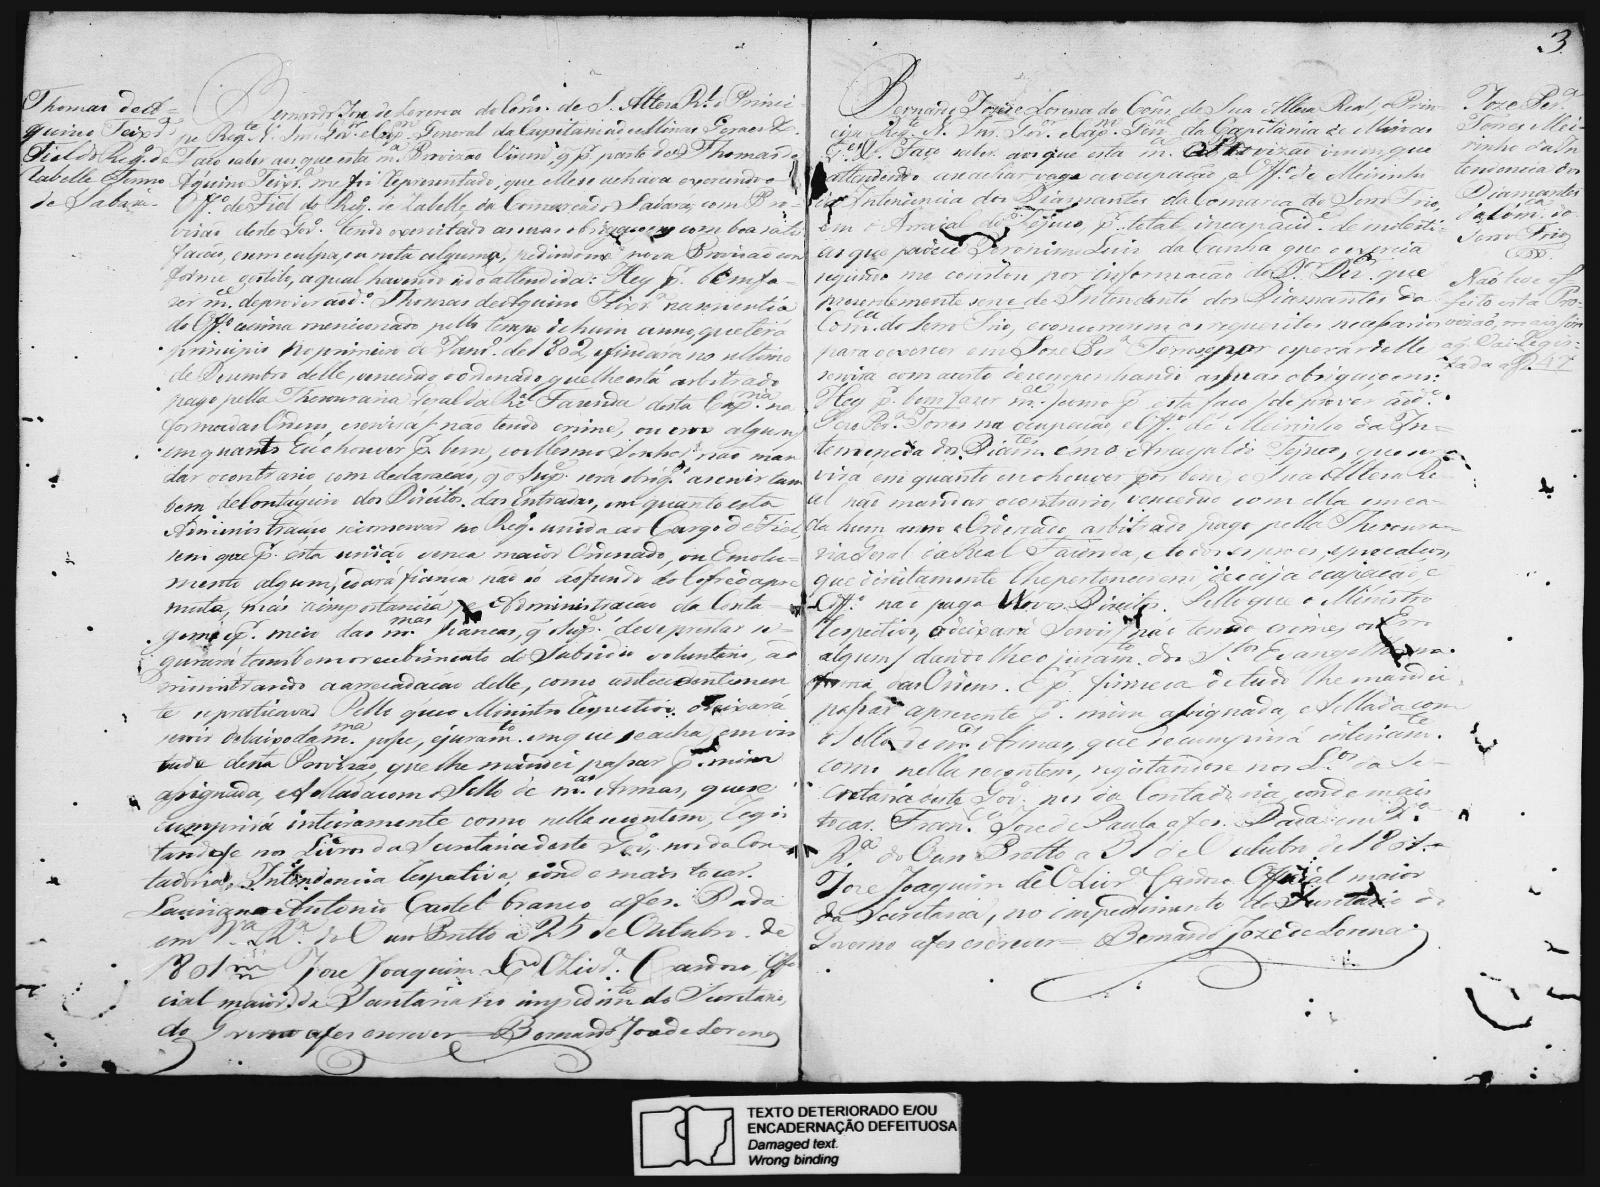 Thomas de A-
quino Teixr.ª
Fiel do Reg.º de
Zabelle Termo
de Sabara.
Bernardo Joze de Lorena do Cons. de S. Alteza R.l o Princi-
pe Reg.te N. Snr. Gov.or e Cap.m General da Capitania de Minas Geraes &.
Faço saber aos que esta m.ª Provizão virem, q p.r parte de Thomas de
Aquino Teixr.ª me foi representado, que elle se achava exercendo o
Off.º de Fiel do Reg.º de Zabelle da Comarca do Sabara, com Pro-
vizão deste Gov.º tendo exercitado as suas obrigaçoens com boa satis
fação, e sem culpa, ou nota alguma, pedindome nova Provizão con
forme o estilo, a qual havendo eu attendido: Hey p.r bem fa-
zer m.ce de prover ao d.º Thomas de Aquino Teixr.ª na serventia
do Off.º acima mencionado pello tempo de hum anno, que terá
principio no primeiro de Janr.º de 1802, e findará no ultimo
de Dezembro delle, vencendo o ordenado que lhe está arbitrado
pago pella Thezouraria Geral da R.l Fazenda desta Cap.nia na
forma das Ordens, e servirá / não tendo crime, ou erro algum /
emquanto Eu o houver p.r bem, e o Mesmo Senhor não man
dar o contrario, com declaração, q o Sup.e será obrig.º a servir tam
bem de Contagem dos Direitos das Entradas, em quanto esta
Administração se conservar no Reg.º unida ao Cargo de Fiel,
sem que p.r esta união vença maior Ordenado, ou Emolu-
mento algum, e dará fiança não só ao fundo do Cofre da per
muta, mas a importancia p.ª Administração da Conta-
gem; e p.r meio das m.mas fianças, q o Sup.e deve prestar se-
gurará tambem o recebimento do Subsidio voluntario, ad
ministrando a arrecadação delle, como antecedentemen
te se praticava. Pello que o Ministro respectivo o deixará
servir debaixo da m.ma posse, e juram.to em que se acha, em vir
tude desta Provizão, que lhe mandei passar p.r mim
assignada, e sellada com o Sello de m.as Armas, que se
cumprirá inteiramente como nella se contem, Regis
tandose nos Livros da Secretaria deste Gov.º, nos da Con-
tadoria, Intendencia respectiva, e onde mais tocar.
Antonio Castel branco a fez. Dada
em V.ª R.ª do Ouro Pretto a 25 de Outubro de
1801 Joze Joaquim de Olivr.ª Cardozo, Offi
cial maior da Secretaria no impedim.to do Secretario
do Governo a fez escrever = Bernardo Joze de Lorena
3
Bernardo Joze de Lorena do Cons. de Sua Alteza Real o Prin-
cipe Reg.te N. Snr. Gov.or e Cap.m Gen.al da Capitania de Minas
G.es &. Faço saber aos que esta m.ª Provizão virem, que
attendendo a se achar vaga a ocupação e Off.º de Meirinho
da Intendencia dos Diamantes da Comarca do Serro Frio,
em o Arraial do Tejuco, p.r total incapacid.e de molesti-
as que padece Jeronimo Luis da Cunha que o exercia
segundo me constou por informação do D.r Dez.or que
prezentemente serve de Intendente dos Diamantes da
Com.ca do Serro Frio, e concorrerem os requezitos necessarios
para o exercer em Joze Per.ª Torres, e por esperar delle
servirá com acerto dezempenhando as suas obrigaçoens:
Hey p.r bem fazer m.ce como p.r esta faço / de prover ao d.º
Joze Per.ª Torres na ocupação, e Off.º de Meirinho da In-
tendencia dos Diam.tes em o Arrayal do Tejuco, que ser
virá em quanto eu o houver por bem, e Sua Alteza Re-
al não mandar o contrario, vencendo com ella em ca-
da hum anno o Ordenado arbitrado, pago pella Thezoura-
ria Geral da Real Fazenda, e todos os proes, e precalços,
que direitamente lhe pertencerem, de cuja ocupação, e
Off.º não paga Novos Direitos. Pello que o Ministro
respectivo, o deixará servir / não tendo crime, ou Erro
algum / dandolhe o juram.to dos S.tos Evangelhos na
forma das Ordens. E p.r firmeza de tudo lhe mandei
passar a prezente p.r mim assignada, e sellada com
o Sello de m.as Armas, que se cumprirá inteiram.te
como nella se contem, registandose nos L.os da Se-
cretaria deste Gov.º nos da Contadoria, e onde mais
tocar. Fran.co Joze de Paula a fez. Dada em V.ª
R.ª do Ouro Pretto a 31 de Outubro de 1801.
Joze Joaquim de Olivr.ª Cardozo Official maior
da Secretaria, no impedimento do Secretario do
Governo a fez escrever = Bernardo Joze de Lorena
Joze Per.ª
Torres Mei-
rinho da In
tendencia dos
Diamantes
da Com.ca do
Serro Frio
Não teve ef
feito esta Pro-
vizão, mais sim
a q vai regis-
tada a f. 47
TEXTO DETERIORADO E/OU
ENCADERNAÇÃO DEFEITUOSA
Damaged text.
Wrong binding